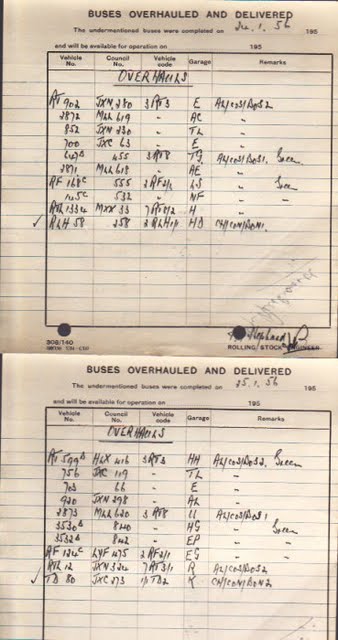 BUSES OVERHAULED AND DELIVERED
The undermentioned buses were completed on 24.1.56 195
and will be available for operation on 195
Vehicle No. Council No. Vehicle code Garage Remarks
OVERHAULS
RT 902 JXN 280 3RT3 E
2872 MLL 619 " AC "
852 JXN 230 " TL "
700 JXC 63 " E "
455 3RT8 Green
2871 MLL 618 " AE "
RF 555 2RF2/1 LS Green
532 " NF " "
RTL 1334 MXX 33 H "
✓ RLH 58 258 2RLH1/1 HD
308/140
ROLLING STOCK ENGINEER
BUSES OVERHAULED AND DELIVERED
The undermentioned buses were completed on 25.1.56 195
and will be available for operation on 195
Vehicle No. Council No. Vehicle code Garage Remarks
OVERHAULS
RT 599 HLX 416 3RT3 HH Green
756 JXC 119 " TL "
703 66 " E "
920 JXN 298 " AL "
2873 MLL 620 3RT8
3530 840 " HG " Green
3532 842 " EP " "
RF LYF 475 2RF2/1 EG " "
RTL 12 JXN 334 7RT3/1 R
✓ TD 80 JXC 273 1/TD2 K